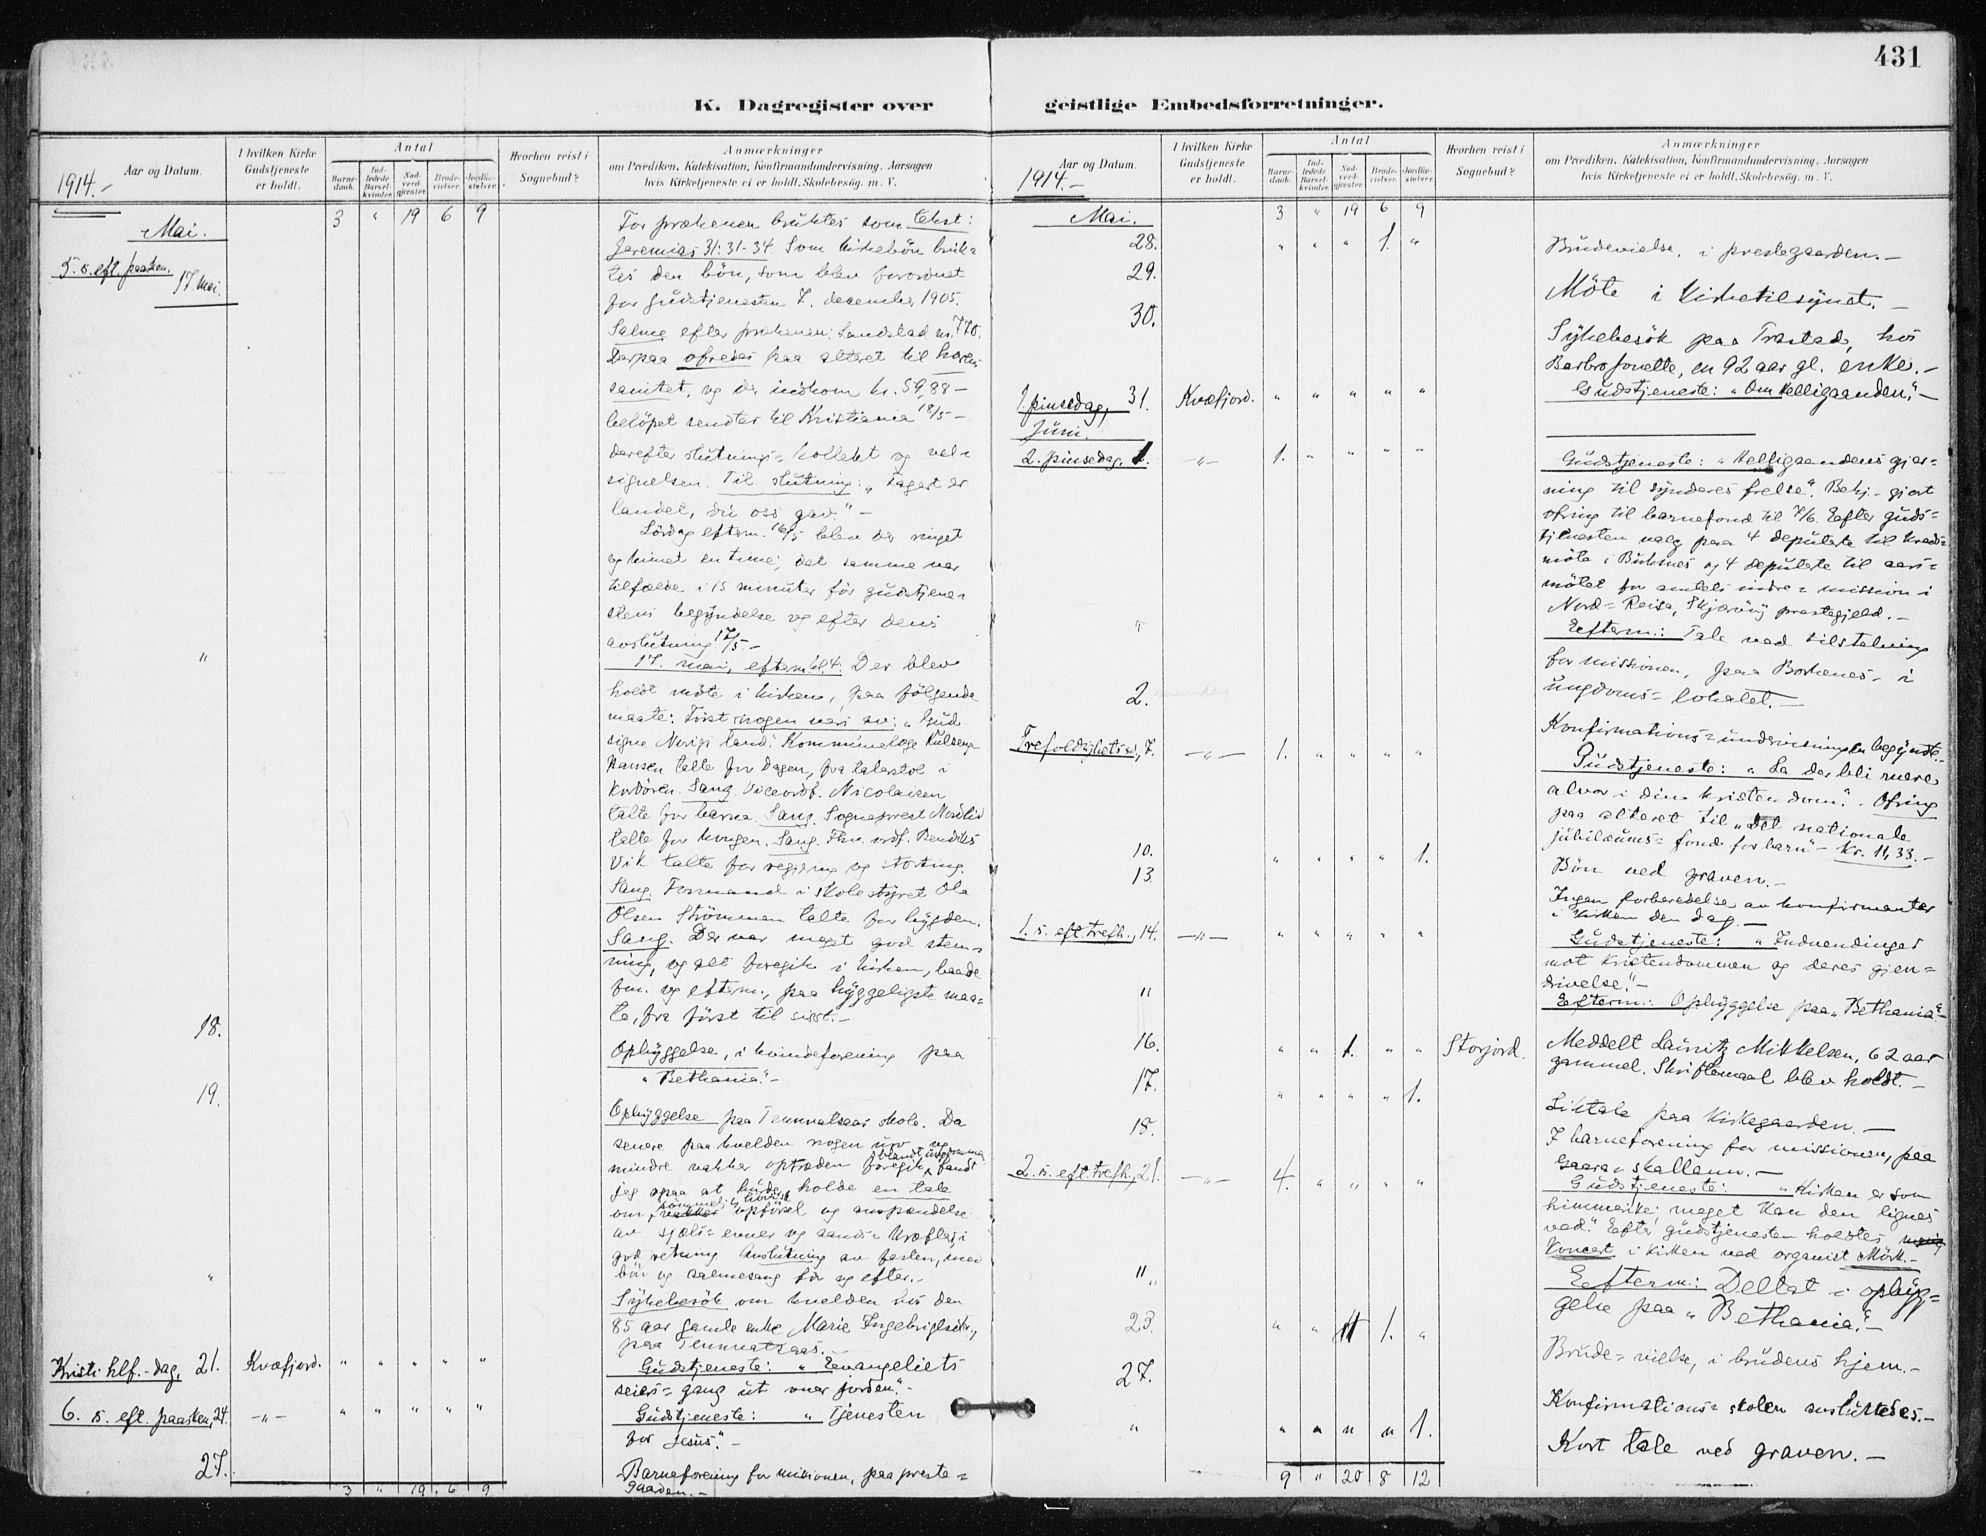 431
K. Dagregister over geistlige Embedsforretninger.
Aar og Datum.
I hvilken Kirke Gudstjeneste er holdt.
Antal
Barnedaab.
Indledede Barselkvinder.
Nadverdgjester.
Brudevielser.
Jordfæstelser.
Hvorhen reist i Sognebud?
Anmærkninger
om Prædiken, Katekisation, Konfirmandundervisning, Aarsagen
hvis Kirketjeneste ei er holdt, Skolebesøg. m. V.
1914.-
Mai. 3 " 19 6 9
5. s. eft. paasken. 17. mai.
For prækenen bruktes som tekst:
Jeremias 31: 31-34. Som kirkebön bruk-
tes den bön, som blev forordnet
for gudstjenesten 7. december 1905.
Salme efter prækenen: Landstad nr. 770.
Derpaa ofredes paa alteret til
sanitet, og der indkom kr. 59,88 -
belöpet sendtes til Kristiania 18/5 -
derefter slutnings = kollekt og vel=
signelsen. Til slutning: „Fagert er
landet, du oss gav." -
Lördag efterm. 16/5 blev der ringet
og kimet en time; det samme var
tilfælde i 15 minuter för gudstjene=
stens begyndelse og efter dens
avslutning 17/5. -
" 17. mai, efterm. kl. 4: Der blev
holdt möte i kirken, paa fölgende
maate: Först nogen vers av: „Gud
signe Norigs land. Kommunelæge
Hansen talte for dagen, fra talerstol i
kordören. Sang. Viceordf. Nicolaisen
talte for barna. Sang. Sogneprest Nordlid
talte for kongen. Sang. Fhv. ordf. Bendiks
Vik talte for regjering og storting.
Sang. Formand i skolestyret Ola
Olsen Strömmen talte for bygden.
Sang. Der var meget god stem=
ning, og alt foregik i kirken, baade
fm. og efterm., paa hyggeligste maa=
te, fra först til sisst. -
18. Opbyggelse, i kvindeforening paa
„Bethania". -
19. Opbyggelse paa Temmelaas skole. Da
senere paa kvelden nogen
mindre vakker optræden foregik blandt ungdommen, fandt
jeg paa at holde en tale
om opförsel og anspændelse
av sjæls = evner og aands = kræfter, i
god retning. Avslutning av festen, med
bön og salmesang för og efter. -
" Sykebesök om kvelden hos den
85 aar gamle enke Marie Ingebrigtsen,
paa
Kristi hlf.-dag, 21. Kvæfjord. " " " " " Gudstjeneste: „Evangeliets
seiers = gang ut over jorden". -
6. s. eft. paasken, 24. -"- " " " " " Gudstjeneste: „Tjenesten
for Jesus". -
27. Barneforening for missionen, paa preste=
gaarden. -
3 " 19 6 9
Aar og Datum.
I hvilken Kirke Gudstjeneste er holdt.
Antal
Barnedaab.
Indledede Barselkvinder.
Nadverdgjester.
Brudevielser.
Jordfæstelser.
Hvorhen reist i Sognebud?
Anmærkninger
om Prædiken, Katekisation, Konfirmandundervisning, Aarsagen
hvis Kirketjeneste ei er holdt, Skolebesøg. m. V.
1914.-
Mai. 3 " 19 6 9
28. " " " 1. " Brudevielse, i prestegaarden. -
29. Möte i kirketilsynet. -
30. Sykebesök paa Trastad, hos
Barbro Jonette, en 92 aar gl. enke. -
1. pinsedag, 31. Kvæfjord. " " " " " Gudstjeneste: „Om Helligaanden". -
Juni.
2. pinsedag, 1. -"- 1. " " " " Gudstjeneste: „Helligaandens gjer=
ning til synderes frelse". Bekj.-gjort
ofring til barnefond til 7/6. Efter guds=
tjenesten valg paa 4 deputerte til kreds=
möte i Buknes og 4 deputerte til aars=
mötet for amtets indre = mission i
Nord = Reisa, Skjærvöy prestegjeld. -
" Efterm.: Tale ved tilstelning
for missionen, paa Borkenes - i
ungdoms = lokalet. -
2. mandag Konfirmations = undervisningen begyndte.
Trefoldighets s., 7. -"- 1. " " " " Gudstjeneste: „La der bli mere
alvor i din kristendom". - Ofring
paa alteret til „det nationale
jubilæums = fond for barn" - kr. 11,33. -
10. " " " " 1. Bön ved graven. -
13. Ingen forberedelse av konfirmanter
i kirken den dag. -
1. s. eft. trefh., 14. -"- " " " " " Gudstjeneste: „Indvendinger
mot kristendommen og deres gjen=
drivelse". -
" Efterm.: Opbyggelse paa „Bethania". -
16. " " 1. " " Storjord. Meddelt Lauritz Mikkelsen, 62 aar
gammel. Skriftemaal blev holdt. -
17. " " " " 1. Liktale paa kirkegaarden. -
18. I barneforening for missionen, paa
Gaara = skallann. -
2. s. eft. trefh., 21. -"- 4. " " " " Gudstjeneste: „Kirken er som
himmerike: meget kan den lignes
ved". Efter gudstjenesten holdtes
Koncert i kirken ved organist Mörk. -
" Efterm.: Deltat i opbyg=
gelse paa „Bethania". -
23. " " " 1. " Brude = vielse, i brudens hjem. -
27. Konfirmations = skolen avsluttedes. -
" " " " " 1. Kort tale ved graven. -
9 " 20 8 12